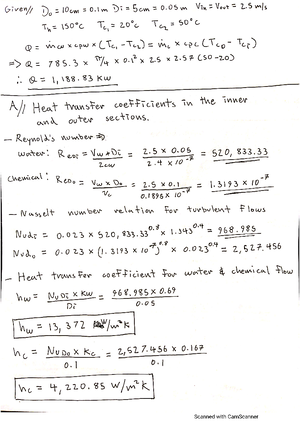 Given// D₀ = 10cm = 0.1m Di = 5cm = 0.05m Vin = Vout = 2.5 m/s
Th = 150°C Tc₁ = 20°C Tc₂ = 50°C
Q = ṁcw × cpw × (Tc₁ - Tc₂) = ṁc × cpc (Tc₀ - Tc₁)
⇒ Q = 785.3 × π/4 × 0.1² × 25 × 2.57 (50-20)
∴ Q = 1,188.83 kW
A// Heat transfer coefficients in the inner
and outer sections.
- Reynold's number ⇒
water: Redi = Vw * Di / 2cw = 2.5 × 0.05 / 2.4 × 10⁻⁷ = 520,833.33
chemical: Redo = Vw × Do / Vc = 2.5 × 0.1 / 0.1895 × 10⁻⁷ = 1.3193 × 10⁻⁷
- Nusselt number relation for turbulent flows
Nudi = 0.023 × 520,833.33^0.8 × 1.343^0.4 = 968.985
Nudo = 0.023 × (1.3193 × 10⁻⁷)^0.8 × 0.023^0.4 = 2,527.456
- Heat transfer coefficient for water & chemical flow
hw = Nu Di × Kw / Di = 968.985 × 0.69 / 0.05
hw = 13,372 W/m²K
hc = Nu Do × Kc / 0.1 = 2,527.456 × 0.167 / 0.1
hc = 4,220.85 W/m²K
Scanned with CamScanner